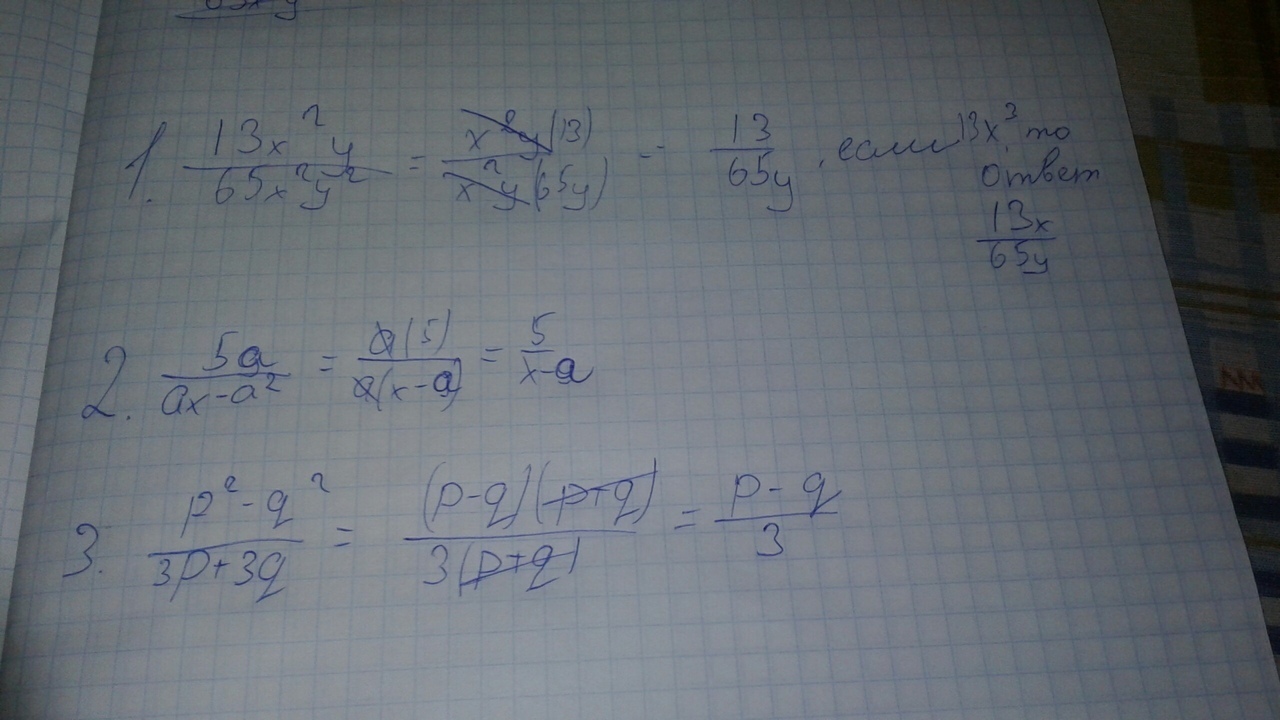 1. 13x²y / 65x²y² = x²y(13) / x²y(65y) = 13 / 65y , если 13x³, то
ответ
13x / 65y
2. 5a / ax-a² = a(5) / a(x-a) = 5 / x-a
3. p²-q² / 3p+3q = (p-q)(p+q) / 3(p+q) = p-q / 3